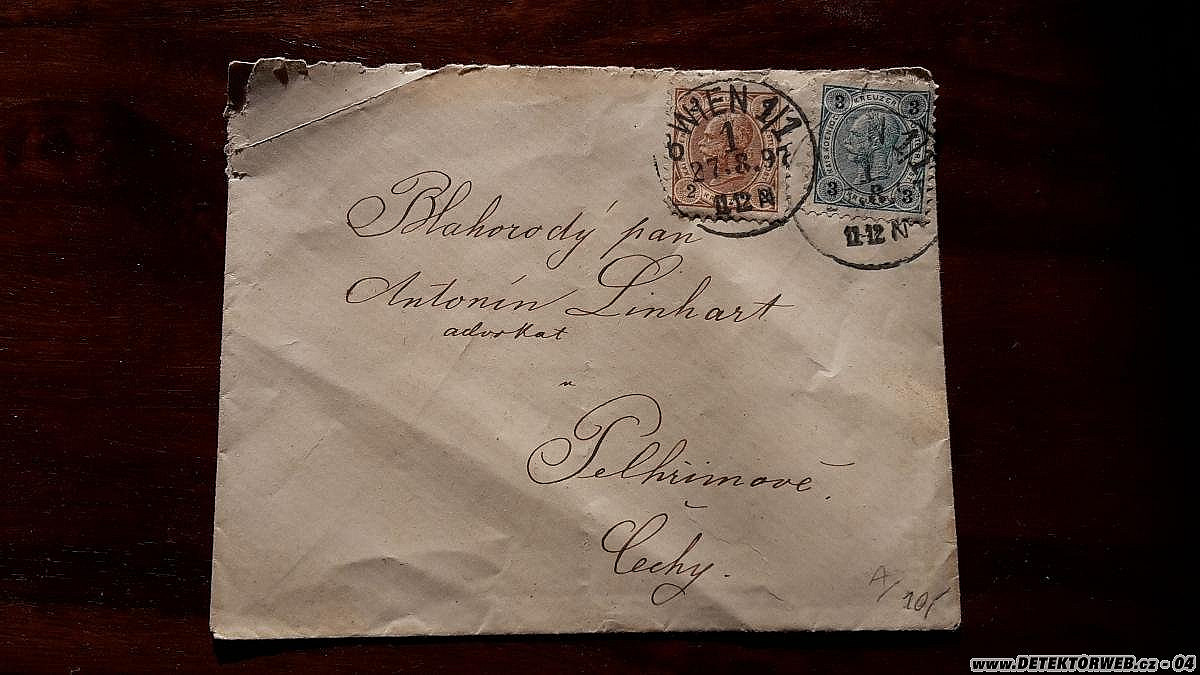 WIEN 1/1
1
27.8.97
11-12 N
2
3 KREUZER 3
3 3
11-12 N
Blahorodý pan
Antonín Linhart
advokat
v
Pelhřimově.
Čechy.
A/
10/
www.DETEKTORWEB.cz - 04